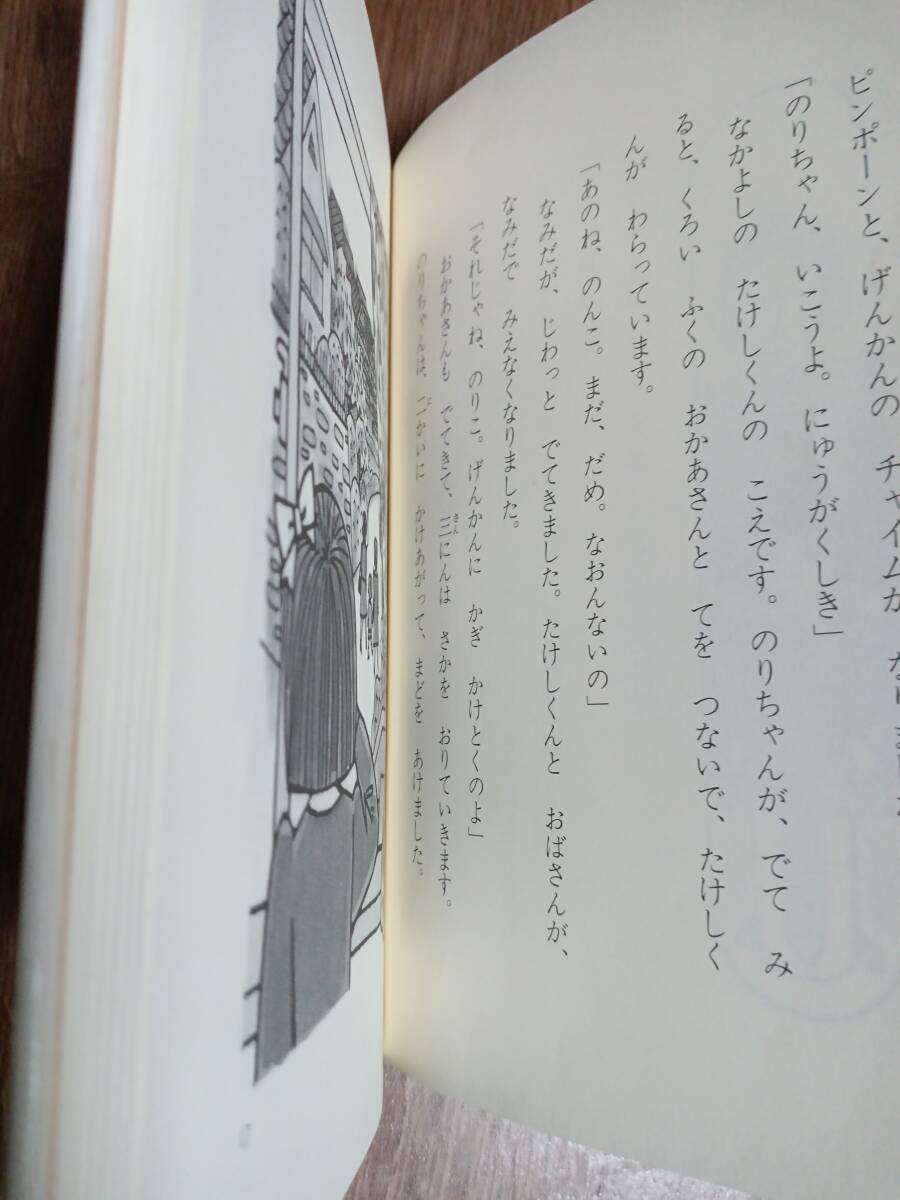 ピンポーンと、げんかんの チャイムが なりました
「のりちゃん、いこうよ。にゅうがくしき」
なかよしの たけしくんの こえです。のりちゃんが、でて み
ると、くろい ふくの おかあさんと てを つないで、たけしく
んが わらっています。
「あのね、のんこ。まだ、だめ。なおんないの」
なみだが、じわっと でてきました。たけしくんと おばさんが、
なみだで みえなくなりました。
「それじゃね、のりこ。げんかんに かぎ かけとくのよ」
おかあさんも でてきて、三にんは さかを おりていきます。
さん
のりちゃんは、二かいに かけあがって、まどを あけました。
に